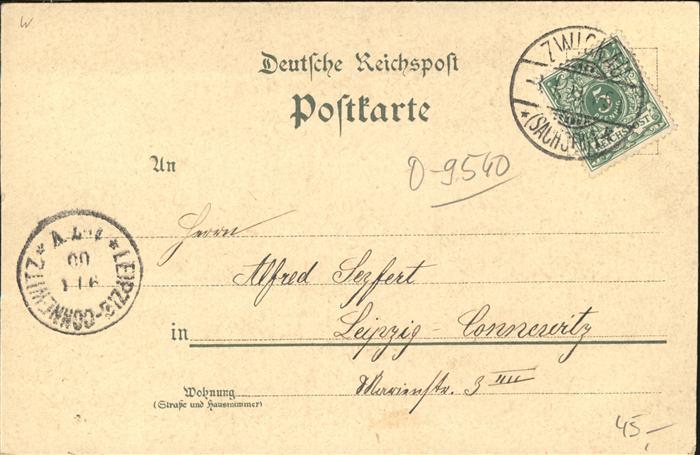 Deutsche Reichspost
Postkarte
ZWICKAU
(SACHSEN)
5
REICHSPOST
An
D-9540
Herrn
Alfred Seyfert
in Leipzig-Connewitz
Wohnung Marienstr. 3 IIII
(Straße und Hausnummer)
LEIPZIG-CONNEWITZ
00
45,-